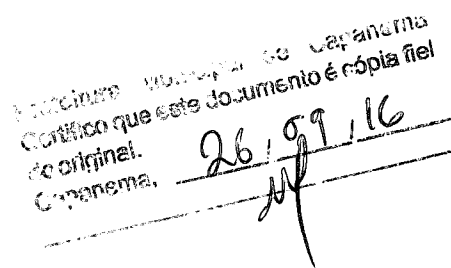 Prefeitura Municipal de Capanema
Certifico que este documento é cópia fiel
do original.
Capanema, 26, 09, 16